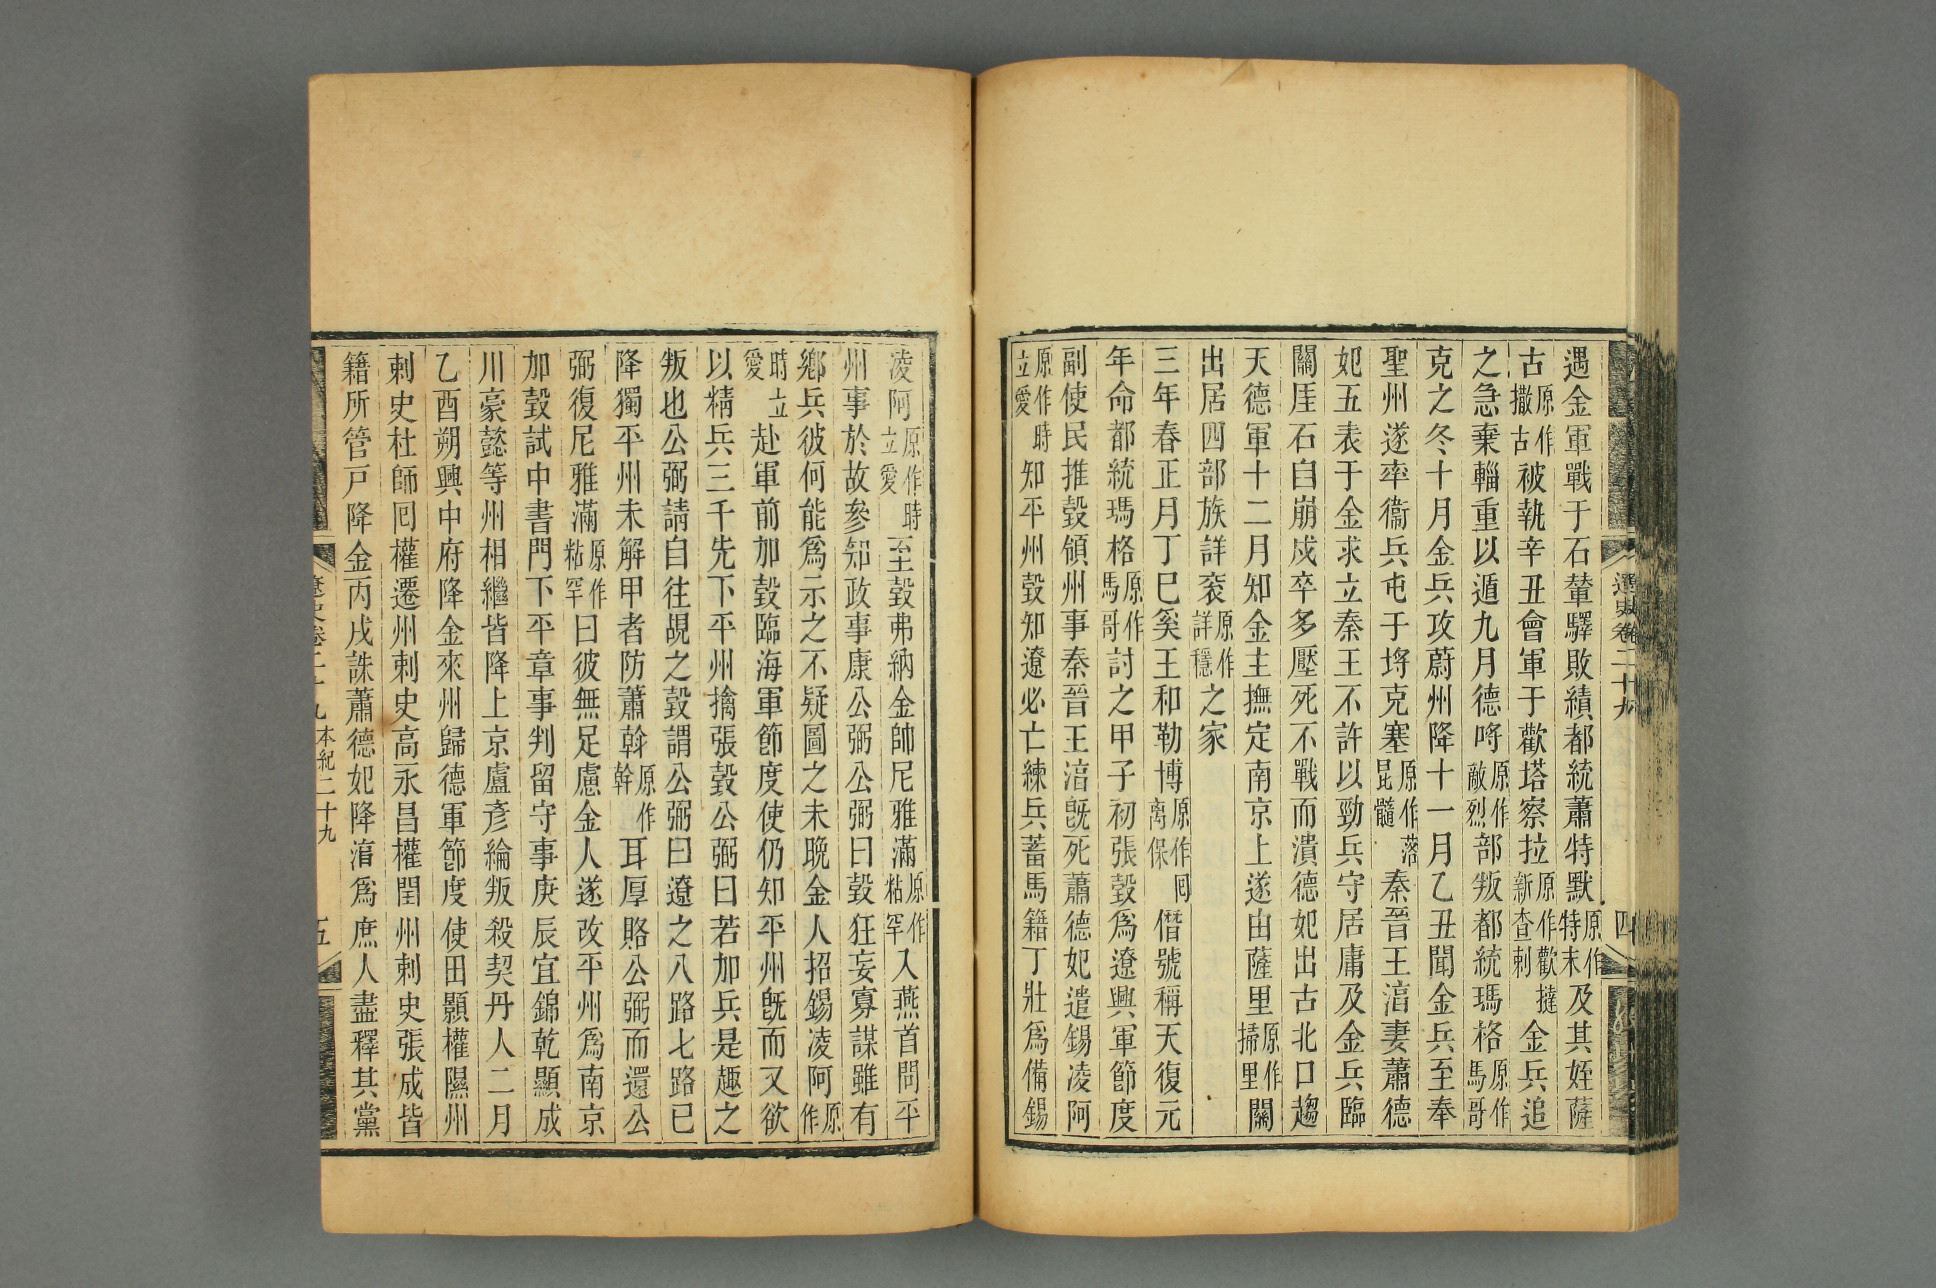 遼史卷二十九
四
遇金軍戰于石輦驛敗績都統蕭特默原作特末及其姪薩
古原作撒古被執辛丑會軍于歡塔察拉原作歡撻新查剌金兵追
之急棄輜重以遁九月德哷原作敵烈部叛都統瑪格原作馬哥
克之冬十月金兵攻蔚州降十一月乙丑聞金兵至奉
聖州遂率衞兵屯于埒克塞原作落昆髓秦晉王湻妻蕭德
妃五表于金求立秦王不許以勁兵守居庸及金兵臨
關厓石自崩戍卒多壓死不戰而潰德妃出古北口趨
天德軍十二月知金主撫定南京上遂由薩里原作掃里關
出居四部族詳衮原作詳穩之家
三年春正月丁巳奚王和勒博原作囘离保僭號稱天復元
年命都統瑪格原作馬哥討之甲子初張瑴爲遼興軍節度
副使民推瑴領州事秦晉王湻旣死蕭德妃遣錫凌阿
原作時立愛知平州瑴知遼必亡練兵蓄馬籍丁壯爲備錫
凌阿原作時立愛至瑴弗納金帥尼雅滿原作粘罕入燕首問平
州事於故參知政事康公弼公弼曰瑴狂妄寡謀雖有
鄉兵彼何能爲示之不疑圖之未晩金人招錫凌阿原作
時立愛赴軍前加瑴臨海軍節度使仍知平州旣而又欲
以精兵三千先下平州擒張瑴公弼曰若加兵是趣之
叛也公弼請自往覘之瑴謂公弼曰遼之八路七路已
降獨平州未解甲者防蕭斡原作幹耳厚賂公弼而還公
弼復尼雅滿原作粘罕曰彼無足慮金人遂改平州爲南京
加瑴試中書門下平章事判留守事庚辰宜錦乾顯成
川豪懿等州相繼皆降上京盧彥綸叛殺契丹人二月
乙酉朔興中府降金來州歸德軍節度使田顥權隰州
刺史杜師囘權遷州刺史高永昌權閏州刺史張成皆
籍所管戸降金丙戌誅蕭德妃降湻爲庶人盡釋其黨
遼史卷二十九 本紀二十九
五